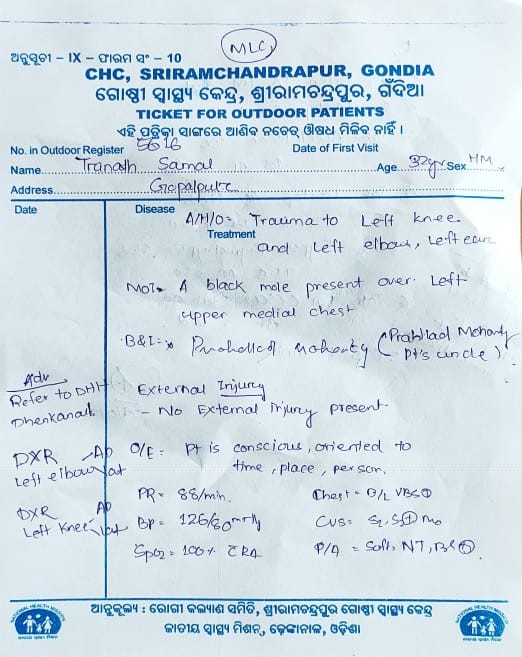 MLC
ଅନୁସୂଚୀ – IX – ଫାରମ ସଂ – 10
CHC, SRIRAMCHANDRAPUR, GONDIA
ଗୋଷ୍ଠୀ ସ୍ୱାସ୍ଥ୍ୟ କେନ୍ଦ୍ର, ଶ୍ରୀରାମଚନ୍ଦ୍ରପୁର, ଗଁଦିଆ
TICKET FOR OUTDOOR PATIENTS
ଏହି ପତ୍ରିକା ସାଙ୍ଗରେ ଆଣିବ ନଚେତ୍ ଔଷଧ ମିଳିବ ନାହିଁ ।
No. in Outdoor Register 5616 Date of First Visit
Name Trinath Samal Age 32yr Sex HM
Address Gopalpur
Date Disease A/H/O= Trauma to Left knee
Treatment and left elbow, left
NOI= A black mole present over Left
upper medial chest
B&I= Mohanty (Prahllad Mohanty
Pt's uncle)
Adv
Refer to DHH
Dhenkanal.
External Injury
– No External injury present
DXR – AP
Left elbow lat
O/E= Pt is conscious, oriented to
time, place, person.
DXR AP
Left Knee lat
PR= 88/min. Chest= B/L VBS⊕
BP= 126/80 mmHg CVS= S₁, S₂⊕
SpO₂= 100% @RA P/A= Soft, NT, BS⊕
NATIONAL HEALTH MISSION
ଆନୁକୂଲ୍ୟ : ରୋଗୀ କଲ୍ୟାଣ ସମିତି, ଶ୍ରୀରାମଚନ୍ଦ୍ରପୁର ଗୋଷ୍ଠୀ ସ୍ୱାସ୍ଥ୍ୟ କେନ୍ଦ୍ର
ଜାତୀୟ ସ୍ୱାସ୍ଥ୍ୟ ମିଶନ୍, ଢ଼େଙ୍କାନାଳ, ଓଡ଼ିଶା
NATIONAL HEALTH MISSION